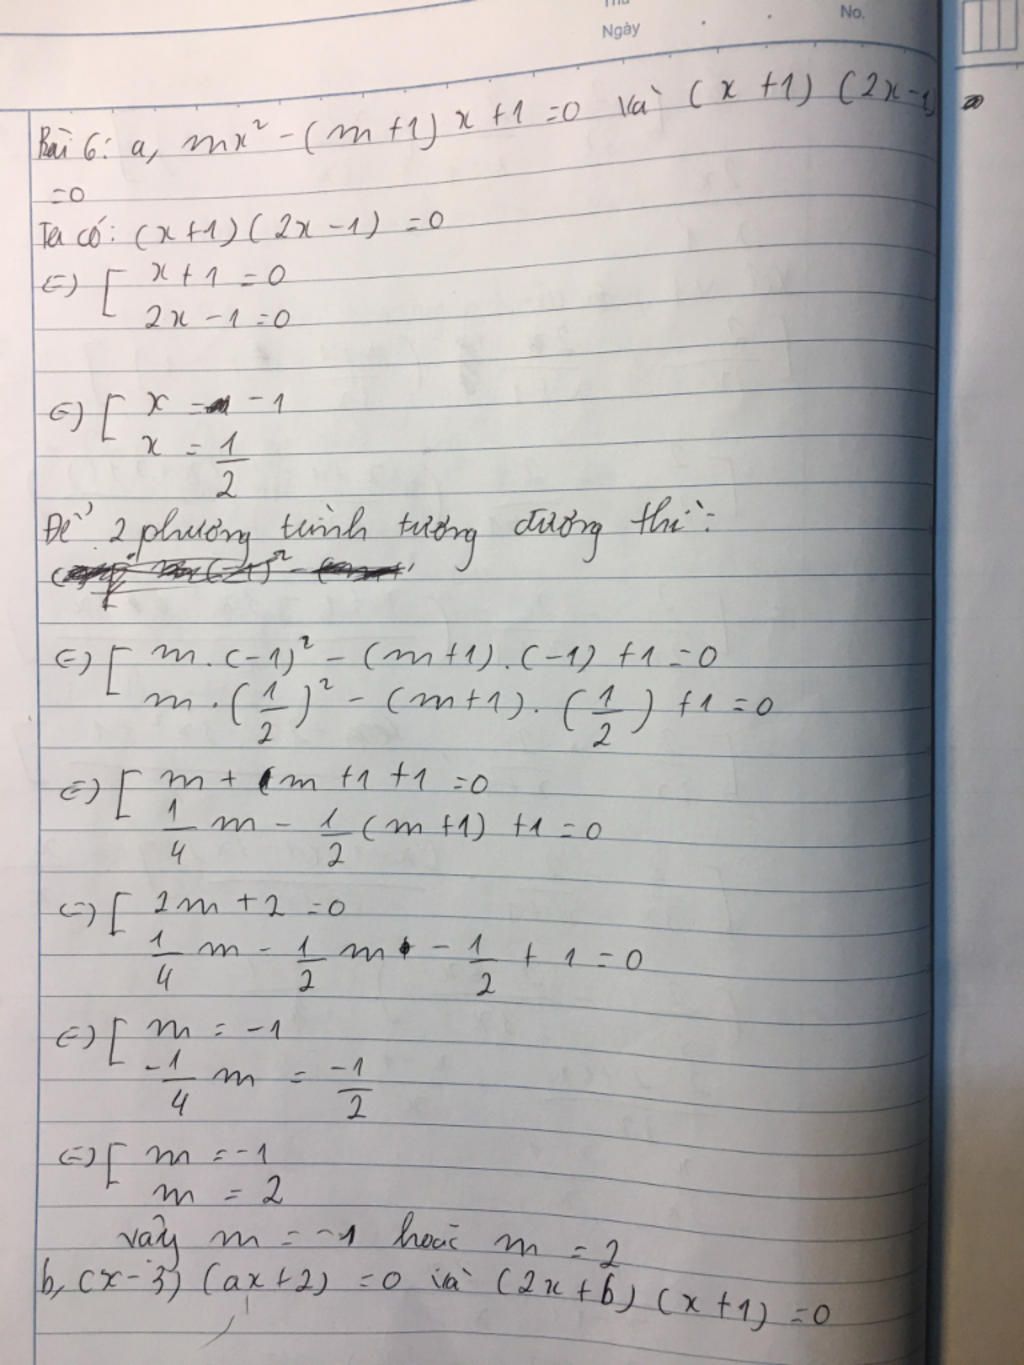 Thứ
Ngày
No.
Bài 6: a, mx² - (m+1) x + 1 = 0 và (x + 1) (2x - 1)
= 0
Ta có: (x + 1) (2x - 1) = 0
(=) [ x + 1 = 0
2x - 1 = 0
(=) [ x = -1
x = 1/2
Để 2 phương trình tương đương thì:
(=) [ m . (-1)² - (m+1) . (-1) + 1 = 0
m . (1/2)² - (m+1) . (1/2) + 1 = 0
(=) [ m + m + 1 + 1 = 0
1/4 m - 1/2 (m+1) + 1 = 0
(=) [ 2m + 2 = 0
1/4 m - 1/2 m - 1/2 + 1 = 0
(=) [ m = -1
-1/4 m = -1/2
(=) [ m = -1
m = 2
vậy m = -1 hoặc m = 2
b, (x - 3) (ax + 2) = 0 và (2x + b) (x + 1) = 0